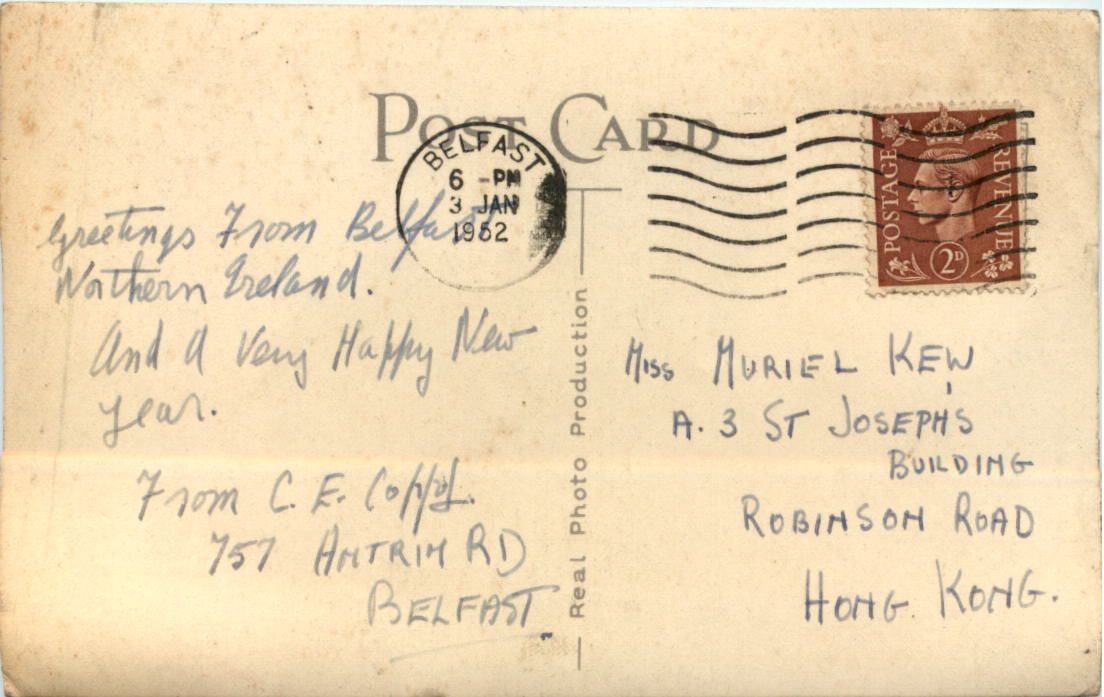 POST CARD
BELFAST
6 - PM
3 JAN
1952
POSTAGE
REVENUE
2D
Greetings From Belfast
Northern Ireland.
And A Very Happy New
year.
From C. E.
757 ANTRIM RD
BELFAST
Real Photo Production
MISS MURIEL KEW
A. 3 ST JOSEPH'S
BUILDING
ROBINSON ROAD
HONG KONG.